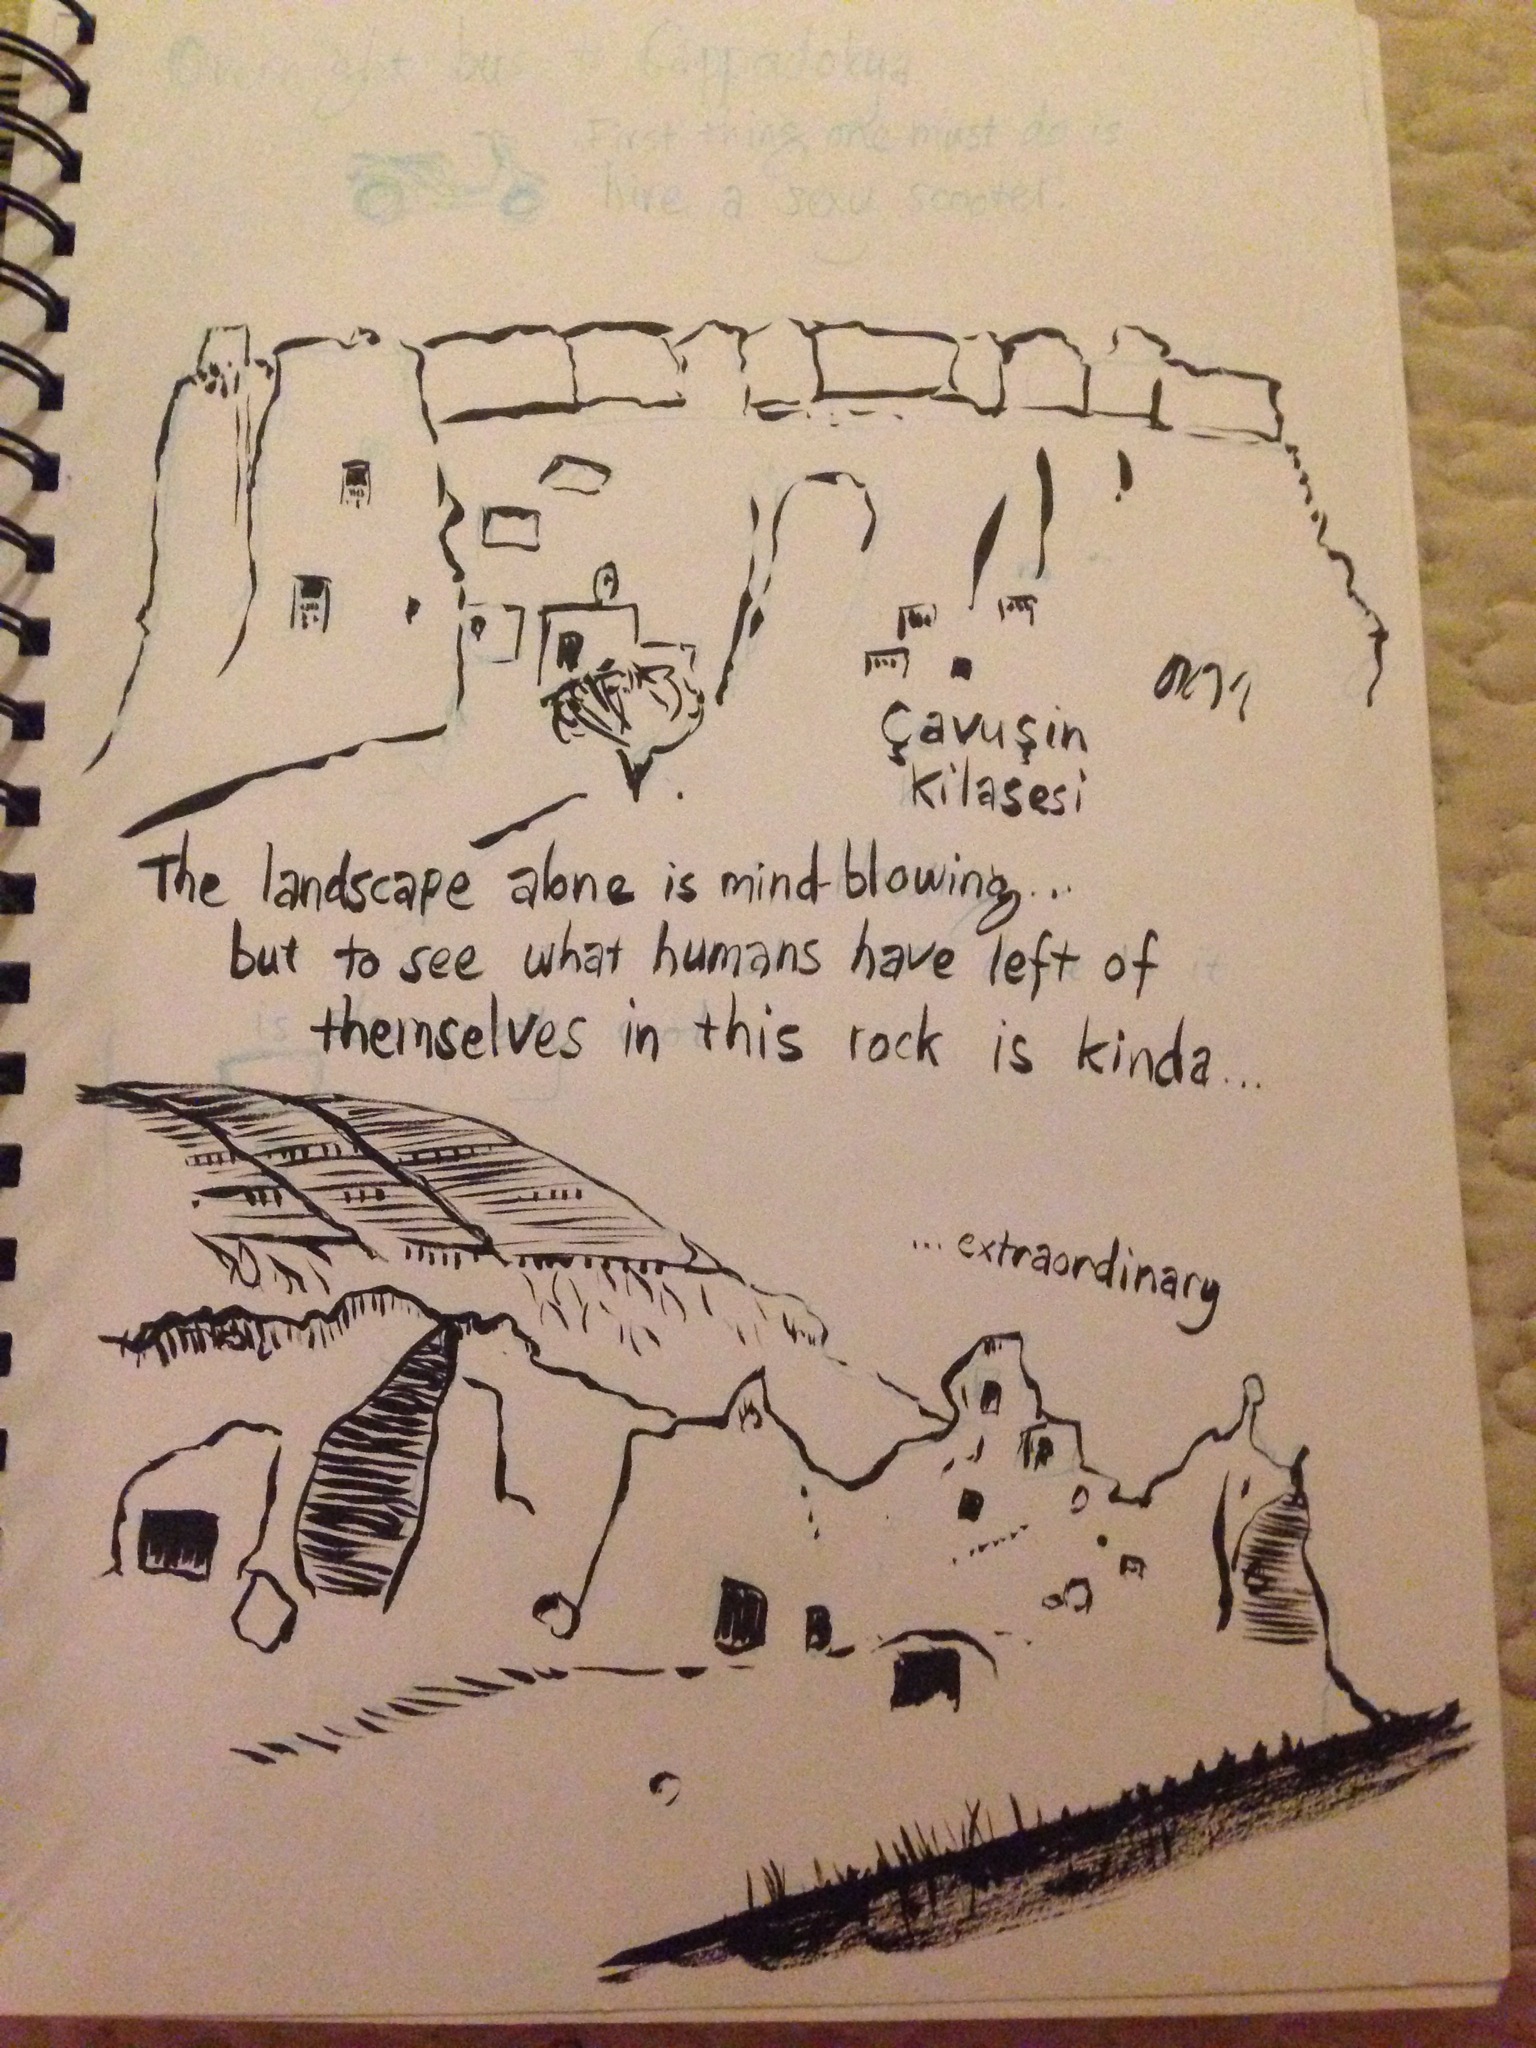 Overnight bus to Cappadokya
First thing one must do is
hire a sexy scooter.
Çavuşin
Kilasesi
The landscape alone is mind-blowing...
but to see what humans have left of
themselves in this rock is kinda...
...extraordinary